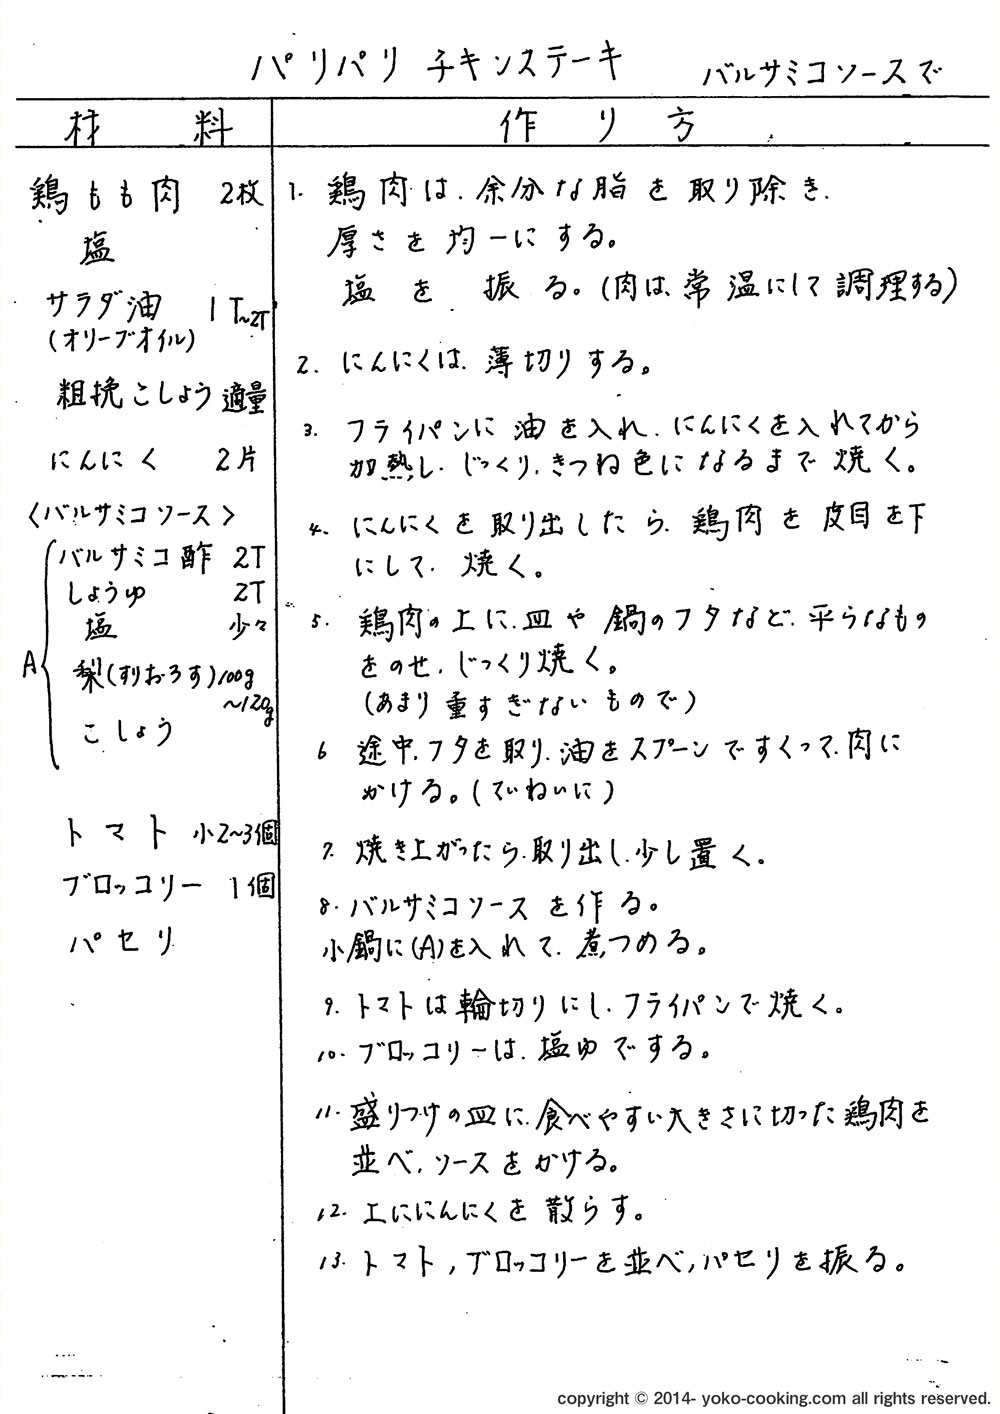 パリパリ チキンステーキ バルサミコソースで
材 料
鶏もも肉 2枚
塩
サラダ油 1T~2T
(オリーブオイル)
粗挽こしょう 適量
にんにく 2片
〈バルサミコソース〉
A
バルサミコ酢 2T
しょうゆ 2T
塩 少々
梨(すりおろす)100g
~120g
こしょう
トマト 小2~3個
ブロッコリー 1個
パセリ
作 り 方
1. 鶏肉は、余分な脂を取り除き、
厚さを均一にする。
塩を振る。(肉は、常温にして調理する)
2. にんにくは、薄切りする。
3. フライパンに油を入れ、にんにくを入れてから
加熱し、じっくり、きつね色になるまで焼く。
4. にんにくを取り出したら、鶏肉を皮目を下
にして、焼く。
5. 鶏肉の上に、皿や鍋のフタなど、平らなもの
をのせ、じっくり焼く。
(あまり重すぎないもので)
6 途中、フタを取り、油をスプーンですくって、肉に
かける。(ていねいに)
7. 焼き上がったら、取り出し、少し置く。
8. バルサミコソースを作る。
小鍋に(A)を入れて、煮つめる。
9. トマトは輪切りにし、フライパンで焼く。
10. ブロッコリーは、塩ゆでする。
11. 盛りつけの皿に、食べやすい大きさに切った鶏肉を
並べ、ソースをかける。
12. 上ににんにくを散らす。
13. トマト、ブロッコリーを並べ、パセリを振る。
copyright © 2014- yoko-cooking.com all rights reserved.